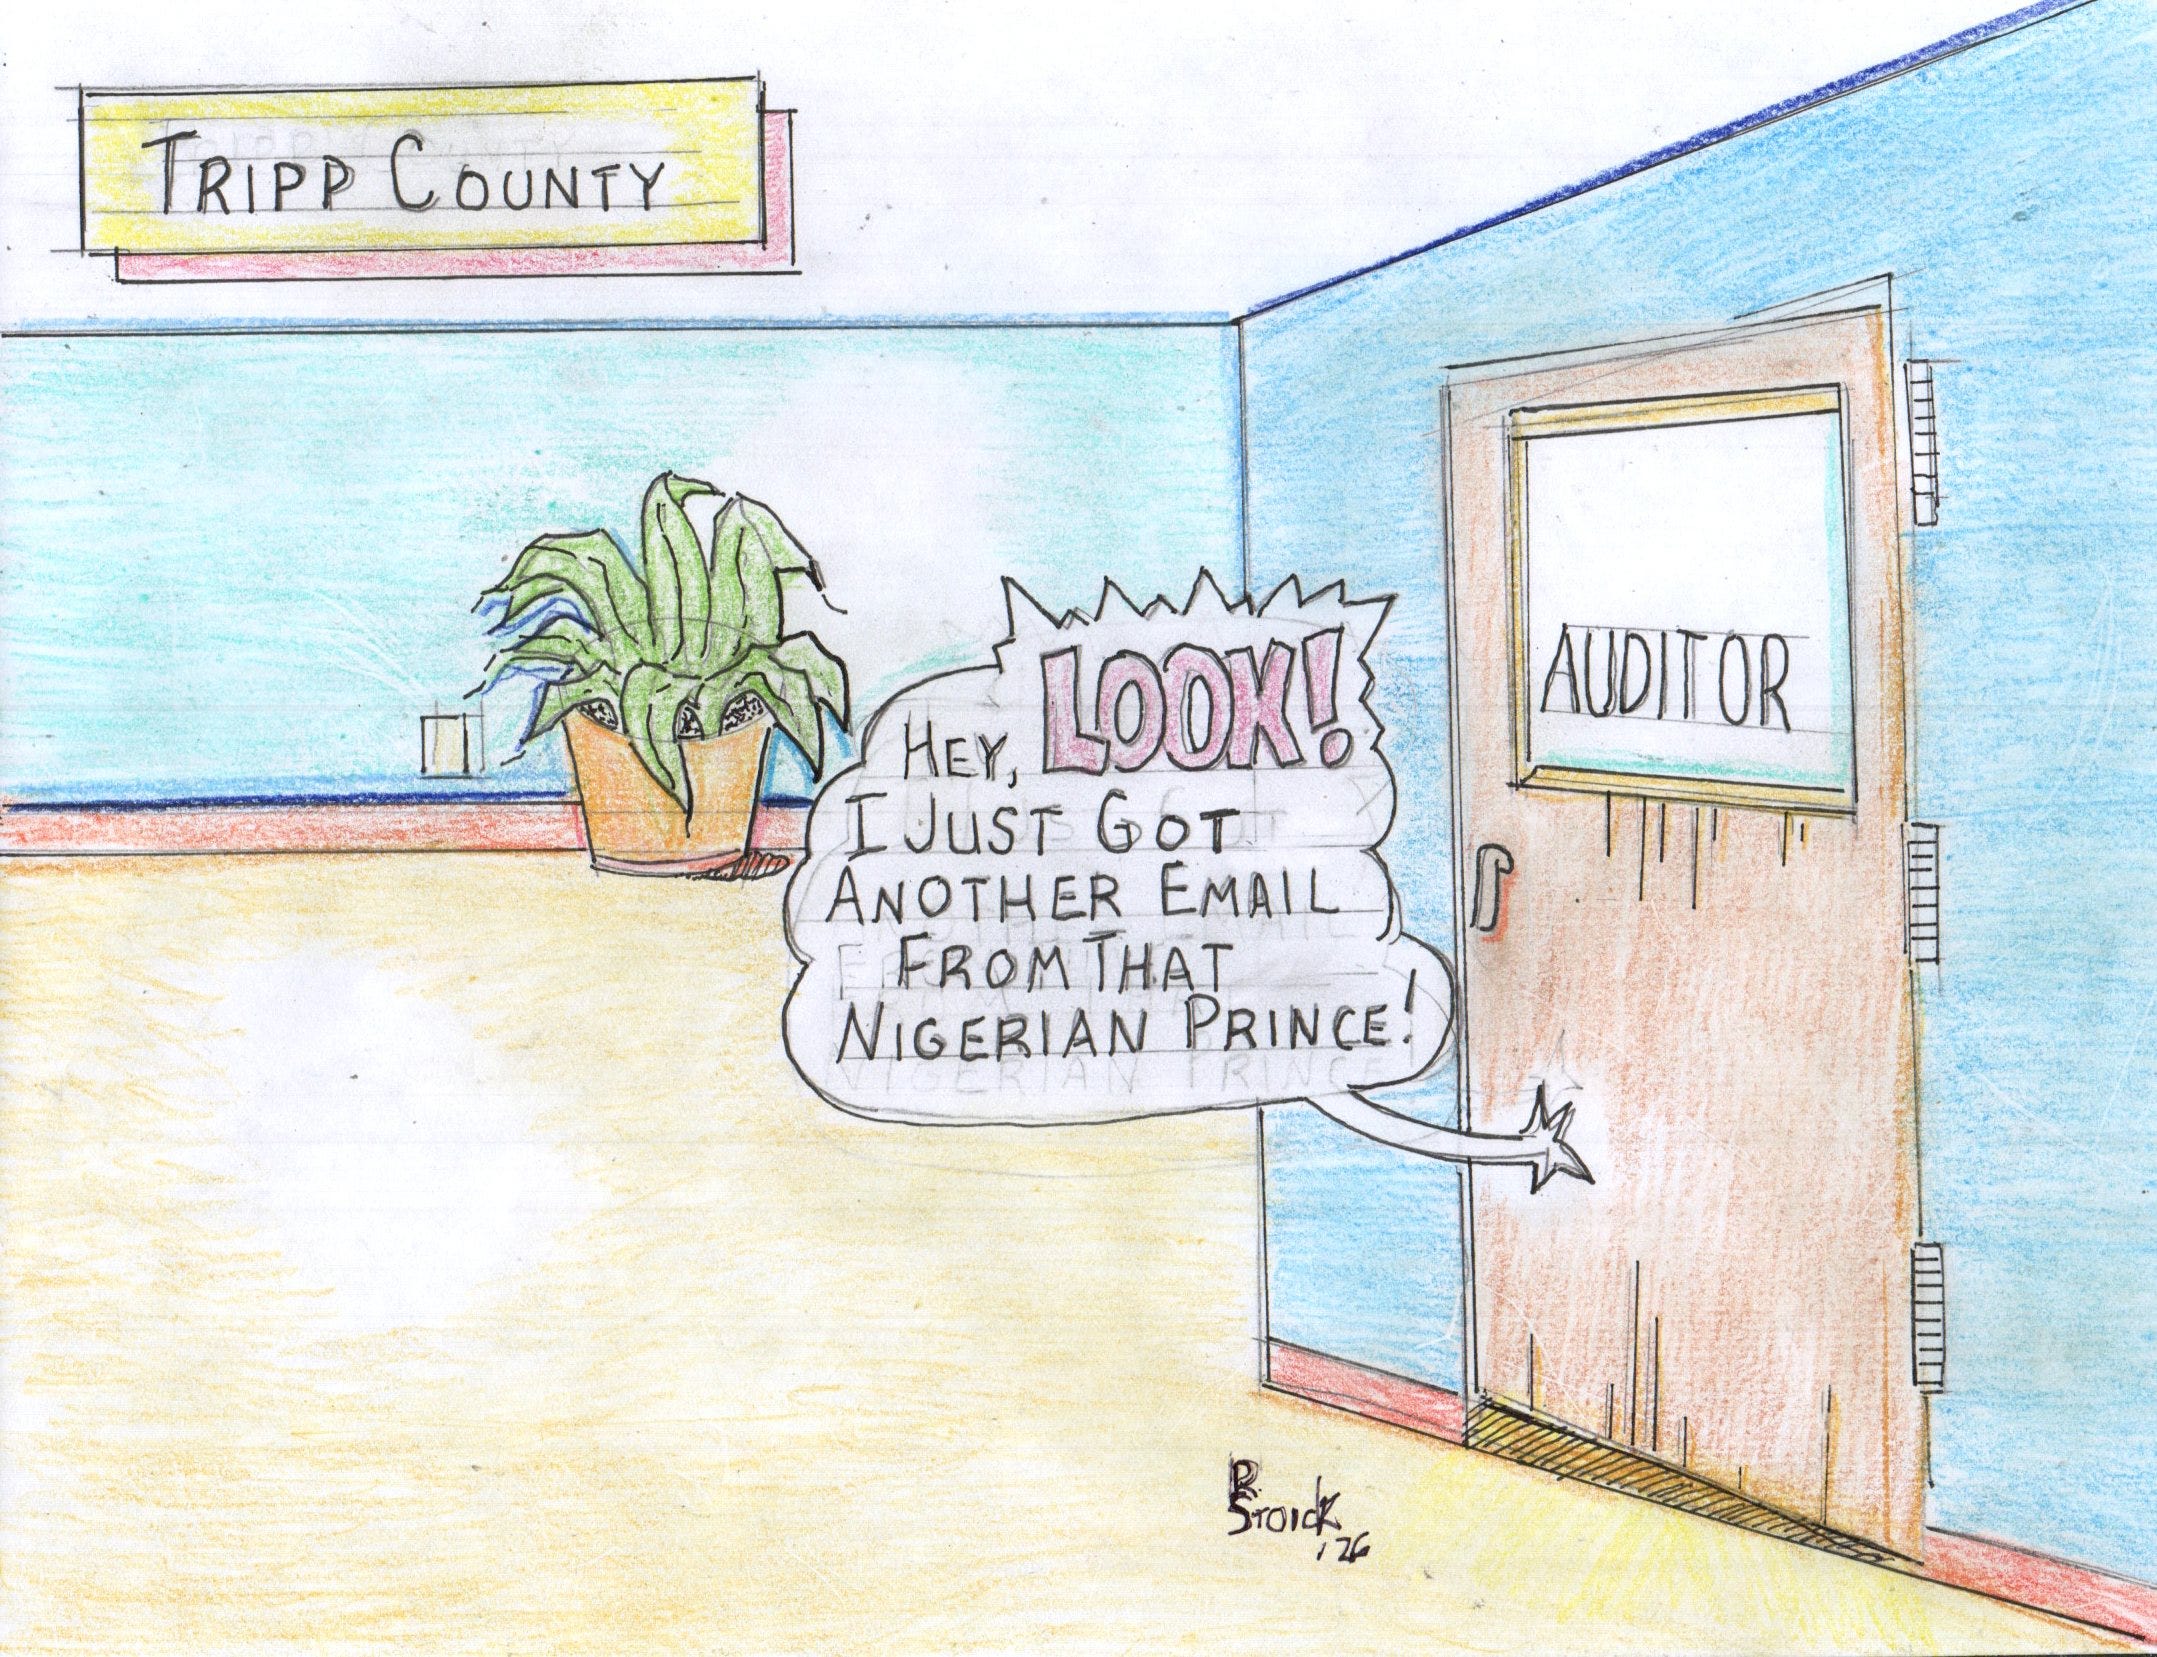 TRIPP COUNTY
HEY, LOOK!
I JUST GOT
ANOTHER EMAIL
FROM THAT
NIGERIAN PRINCE!
AUDITOR
R.
STOICK
'26